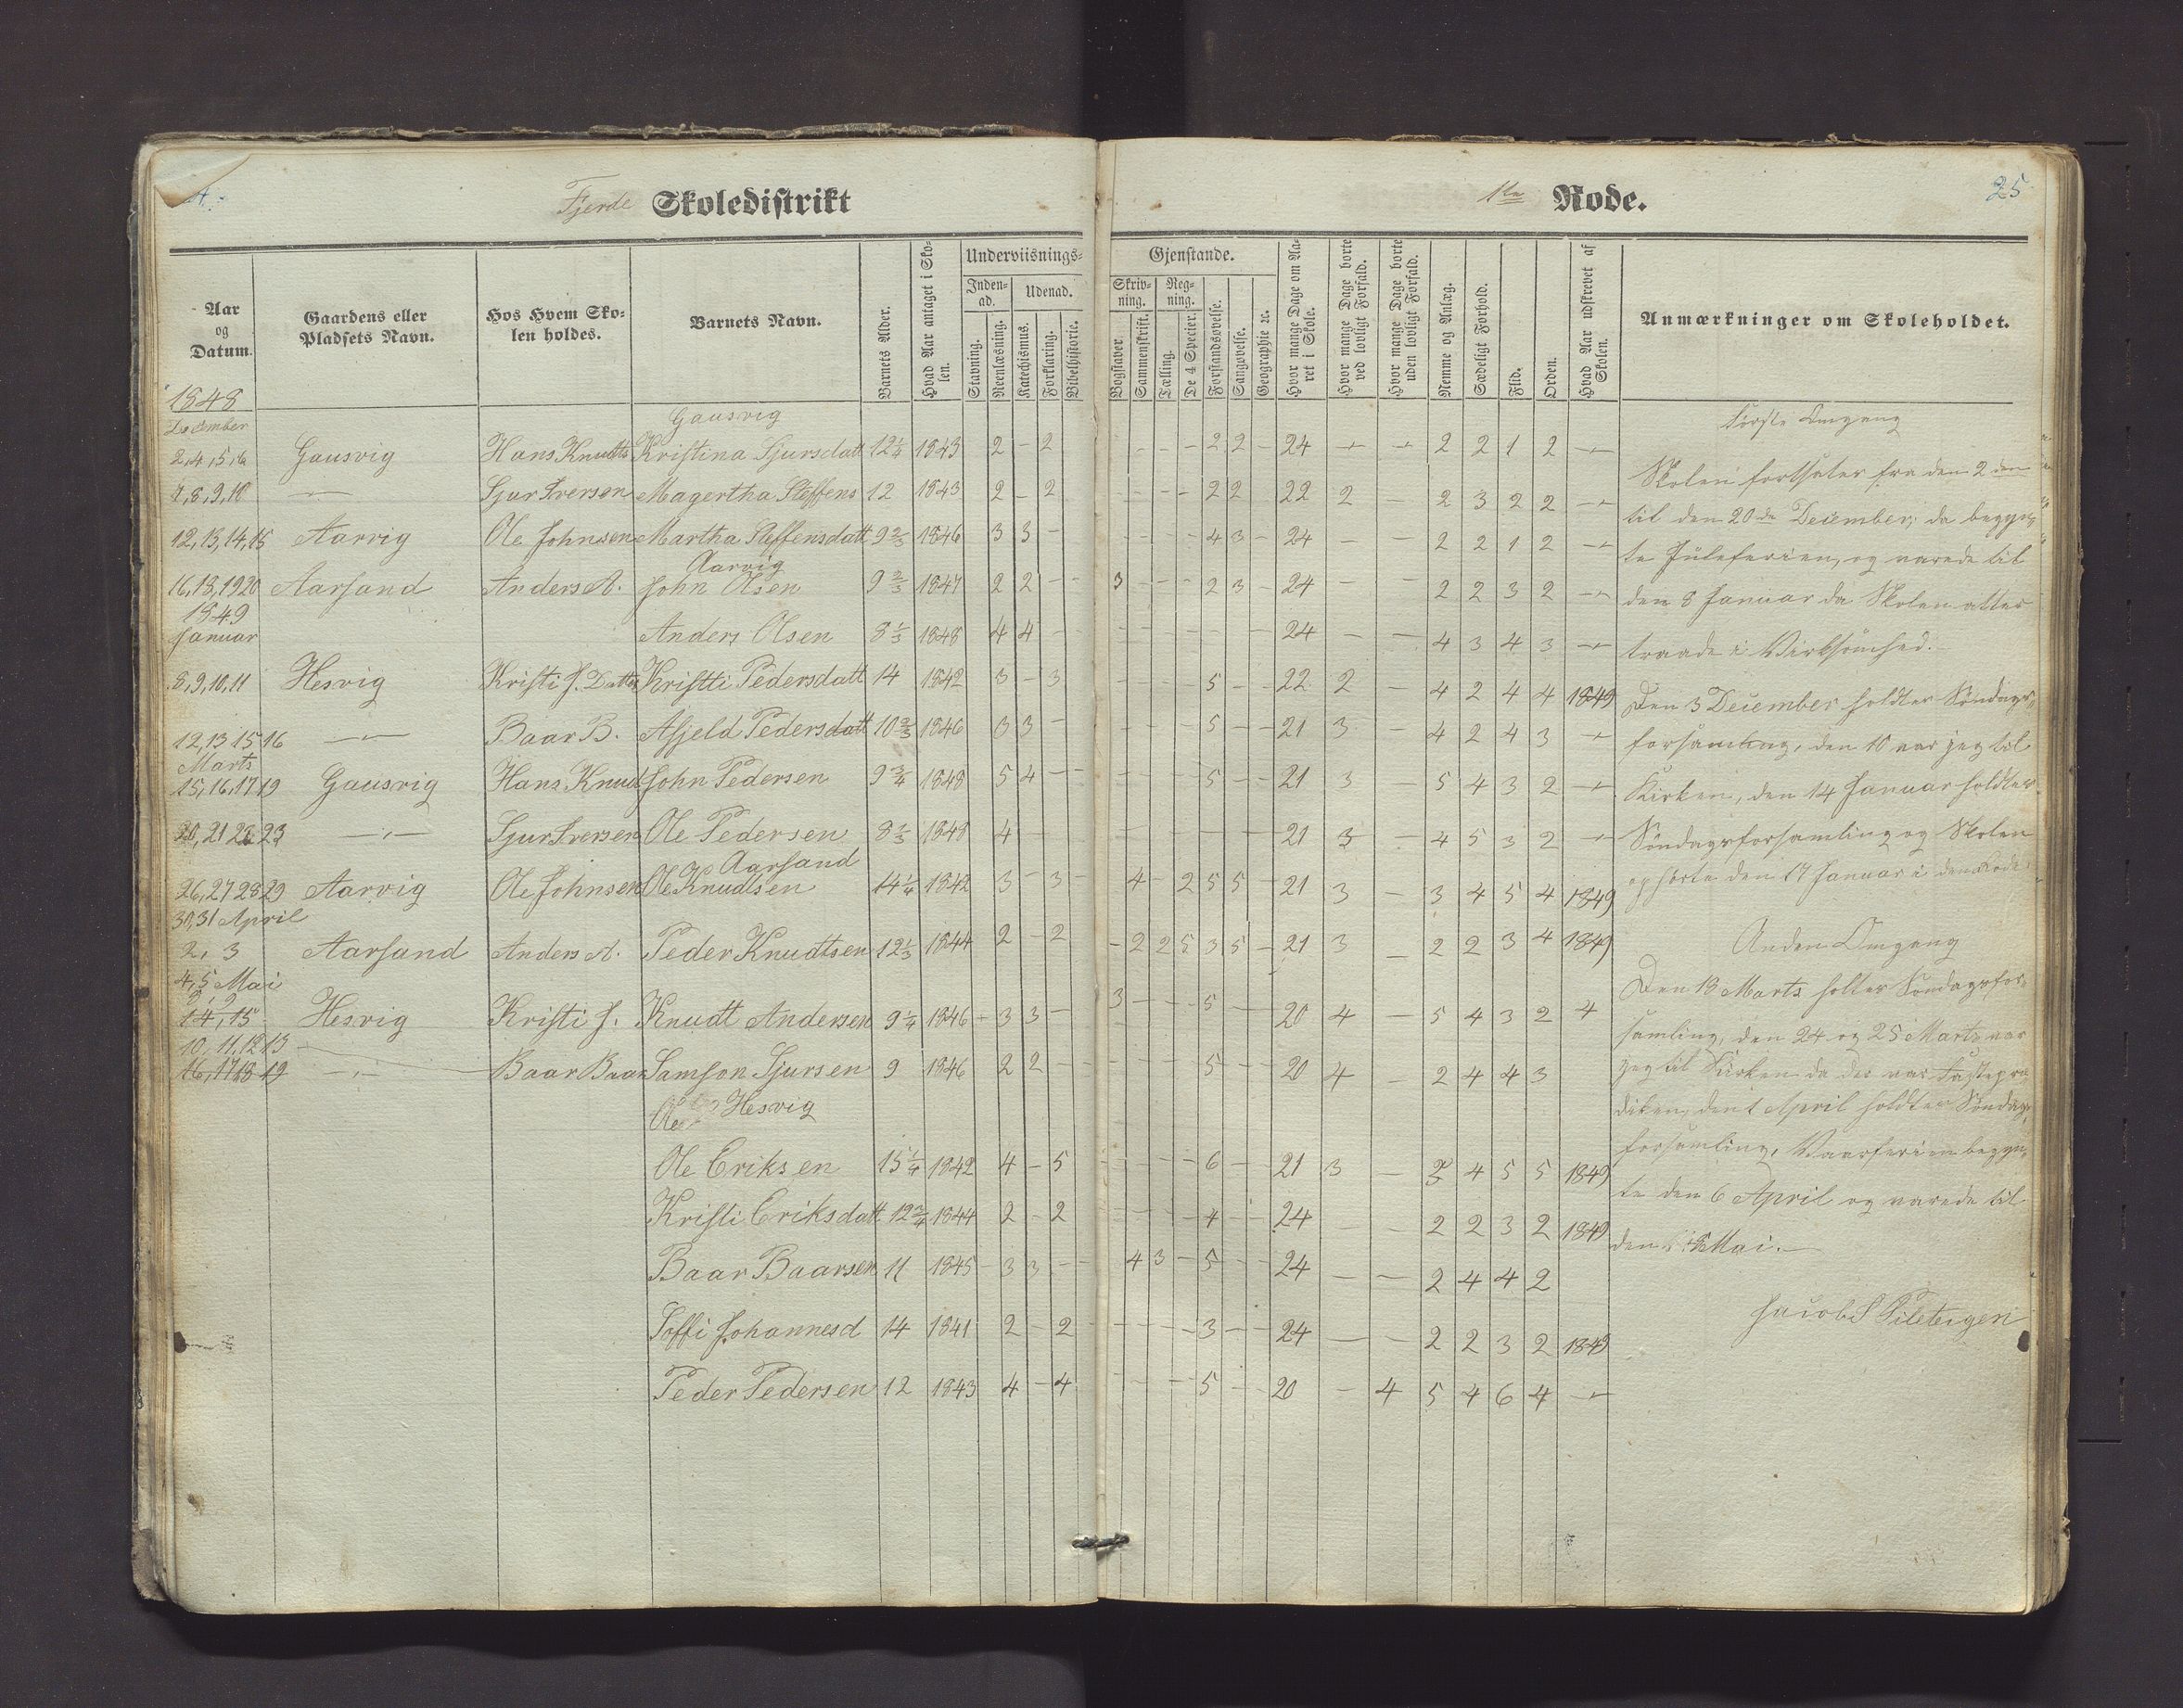 Fjerde Skoledistrikt
1ste Rode.
25
Aar og Datum.
Gaardens eller Pladsets Navn.
Hos Hvem Skolen holdes.
Barnets Navn.
Barnets Alder.
Hvad Aar antaget i Skolen.
Underviisnings-
Inden-ad.
Udenad.
Stavning.
Reenlæsning.
Katechismus.
Forklaring.
Bibelhistorie.
Gjenstande.
Skriv-ning.
Reg-ning.
Bogstaver.
Sammenskrift.
Tælling.
De 4 Specier.
Forstandsøvelse.
Sangøvelse.
Geographie ꝛc.
Hvor mange Dage om Aaret i Skole.
Hvor mange Dage borte ved lovligt Forfald.
Hvor mange Dage borte uden lovligt Forfald.
Nemme og Anlæg.
Sædeligt Forhold.
Flid.
Orden.
Hvad Aar udskrevet af Skolen.
Anmærkninger om Skoleholdet.
1848
December
Gausvig
2,4,5,6 Gausvig Hans Knudts Kristina Sjursdatt 12¼ 1843 2 - 2 - - - - 2 2 - 24 2 2 1 2
7,8,9,10 Sjur Iversen Magertha Steffens 12 1843 2 - 2 - - - - 2 2 - 22 2 - 2 3 2 2
12,13,14,15 Aarvig Ole Johnsen Martha Steffensdatt 9⅔ 1846 3 3 - - - - - 4 3 - 24 - - 2 2 1 2
Aarvig
16,18,19 20 Aarsand Anders A. John Olsen 9⅔ 1847 2 2 - - 3 - - - 2 3 - 24 - - 2 2 3 2
1849
Januar
Anders Olsen 8⅓ 1848 4 4 - 24 - - 4 3 4 3
8,9,10,11 Hesvig Kristi J. Datter Kristti Pedersdatt 14 1842 3 - 3 5 - - 22 2 - 4 2 4 4 1849
12,13 15 16 Baar B. Asjeld Pedersdatt 10⅔ 1846 3 3 - 5 - - 21 3 - 4 2 4 3
Marts
15,16,17 19 Gausvig Hans Knud John Pedersen 9¾ 1848 5 4 - - 5 - - 21 3 - 5 4 3 2
20,21 22 23 Sjur Iversen Ole Pedersen 8⅓ 1848 4 - 21 3 - 4 5 3 2
Aarsand
26,27 28 29 Aarvig Ole Johnsen Ole Knudtsen 14¼ 1842 3 - 3 - 4 - 2 5 5 - 21 3 - 3 4 5 4 1849
30,31 April
2, 3 Aarsand Anders A. Peder Knudtsen 12⅓ 1844 2 - 2 - 2 2 5 3 5 - 21 3 - 2 2 3 4 1849
4,5 Mai
8, 9
14, 15 Hesvig Kristi J. Knudt Andersen 9¼ 1846 - 3 3 - 3 - - - 5 - 20 4 - 5 4 3 2
10, 11,12 13
16,17 18 19 Baar Baar Samson Sjursen 9 1846 2 2 - - 5 - - 20 4 - 2 4 4 3
Ole Hesvig
Ole Eriksen 15¼ 1842 4 - 5 - - - - 6 - - 21 3 - 2 4 5 5 1849
Kristi Eriksdatt 12¾ 1844 2 - 2 - - - - 4 - - 24 - - 2 2 3 2 1849
Baar Baarsen 11 1845 - 3 3 - - 4 3 - 5 - - 24 - - 2 4 4 2
Soffi Johannesd 14 1841 2 - 2 - - - - 3 - - 24 - - 2 2 3 2 1849
Peder Pedersen 12 1843 4 - 4 - - - - 5 - - 20 - 4 5 4 6 4
Første Omgang
Skolen fortsates fra den 2den
til den 20de December; da begyn,
te Juleferien, og varede til
den 8 Januar da Skolen atter
traade i Virksomhed.
Den 3 December holdtes Søndags,
forsamling, den 10 var jeg til
Kirken, den 14 Januar holdtes
Søndagsforsamling og Skolen
ophørte den 17 Januar i denne Rode
Anden Omgang
Den 18 Marts holtes Søndagsfor,
samling, den 24 og 25 Marts var
jeg til Kirken da der var Fastepræ
diken, den 1 April holdtes Søndags,
forsamling, Vaarferien begyn,
te den 6 April og varede til
den Mai.
Jacob S